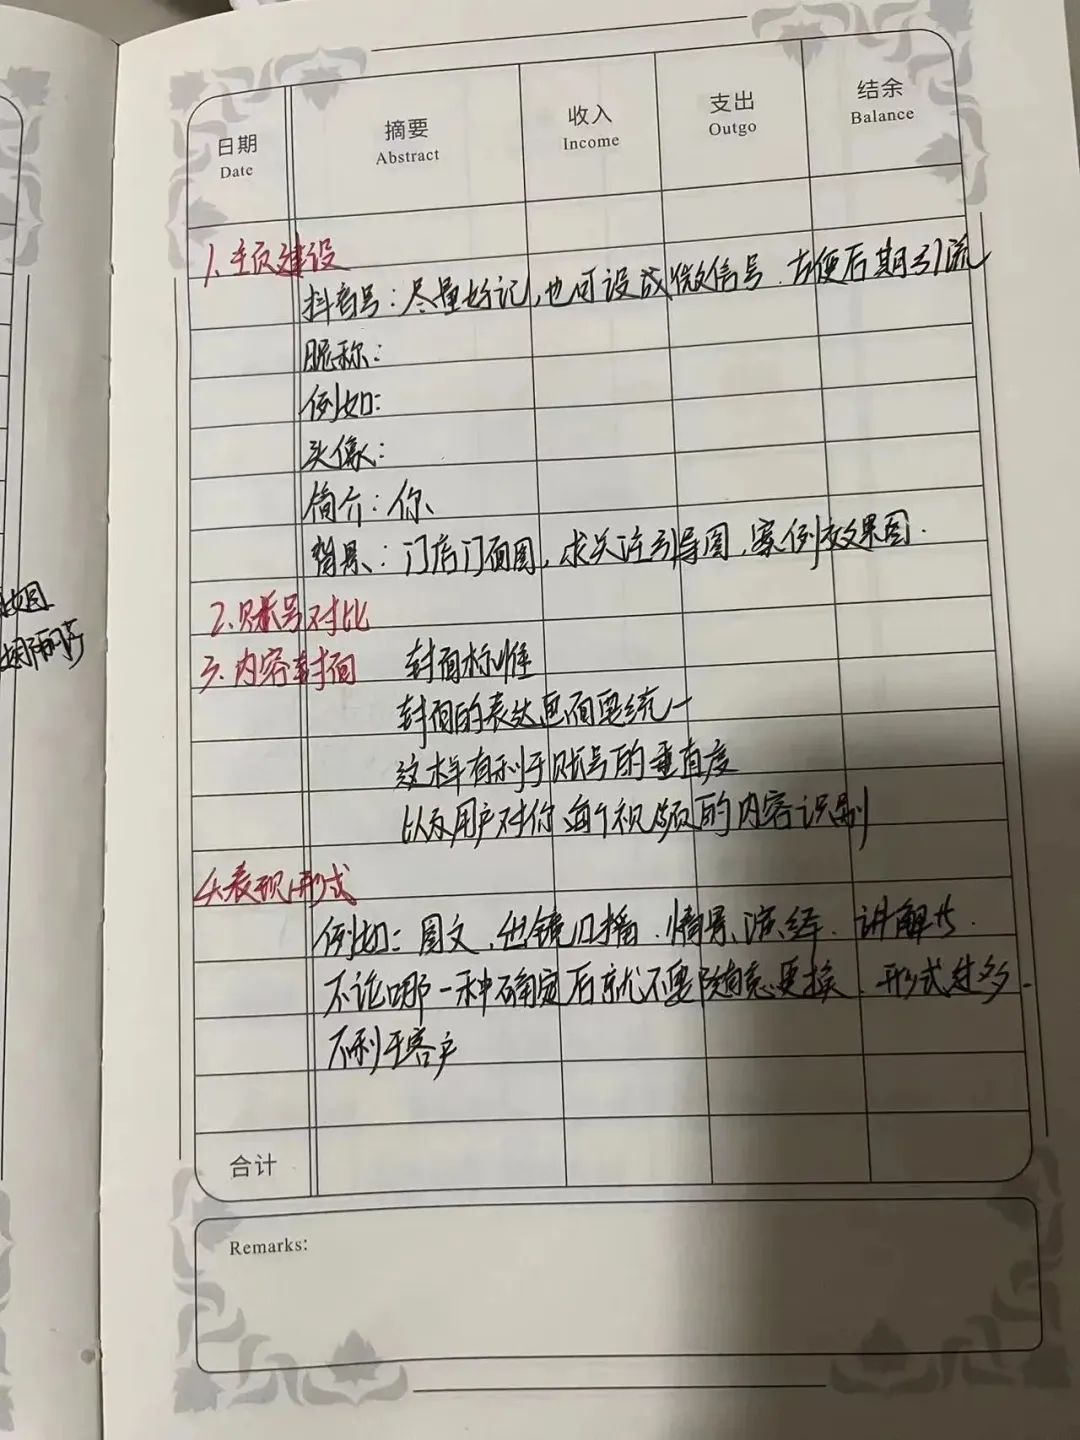 日期 摘要 收入 支出 结余
Date Abstract Income Outgo Balance
1、主页建设
抖音号：尽量好记，也可设成微信号、方便后期引流
昵称：
例如：
头像：
简介：你、
背景：门店门面图，求关注引导图、案例效果图.
2.账号对比
3、内容封面 封面标准
封面的表达画面要统一
这样有利于账号的垂直度
以及用户对你每个视频的内容识别
4.表现形式
例如：图文、出镜口播、情景演绎、讲解片.
不论哪一种确定后就不要随意更换、形式过多、
不利于客户
合计
Remarks: